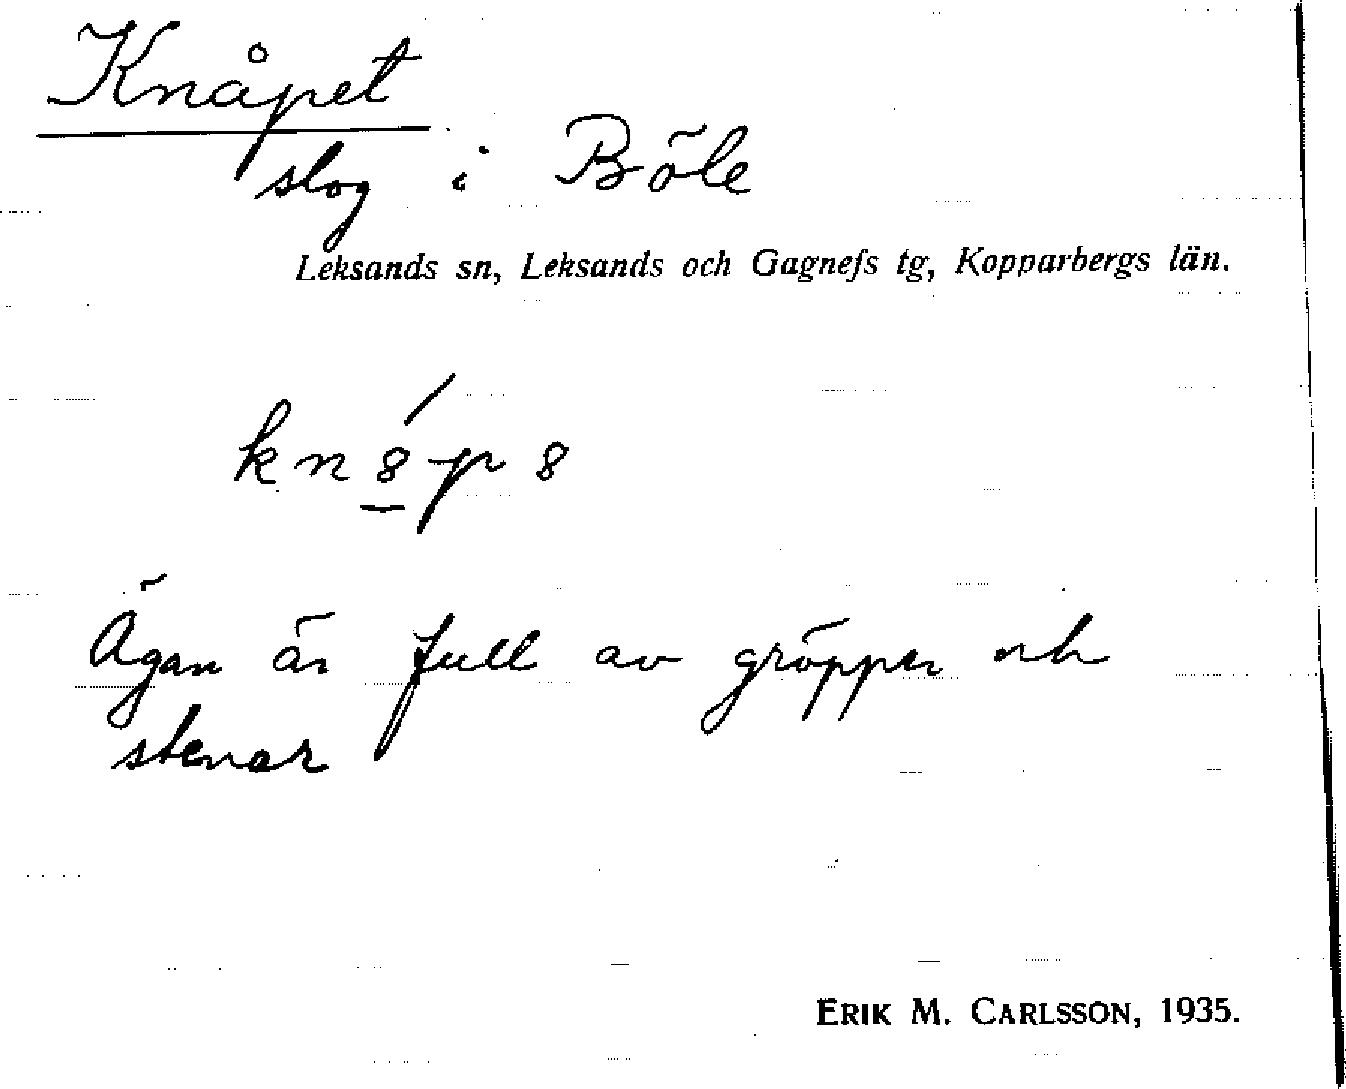 Knåpet
slog i Böle
Leksands sn, Leksands och Gagnefs tg, Kopparbergs län.
kn8̲́p8
Ägan är full av gröpper och
stenar
ERIK M. CARLSSON, 1935.